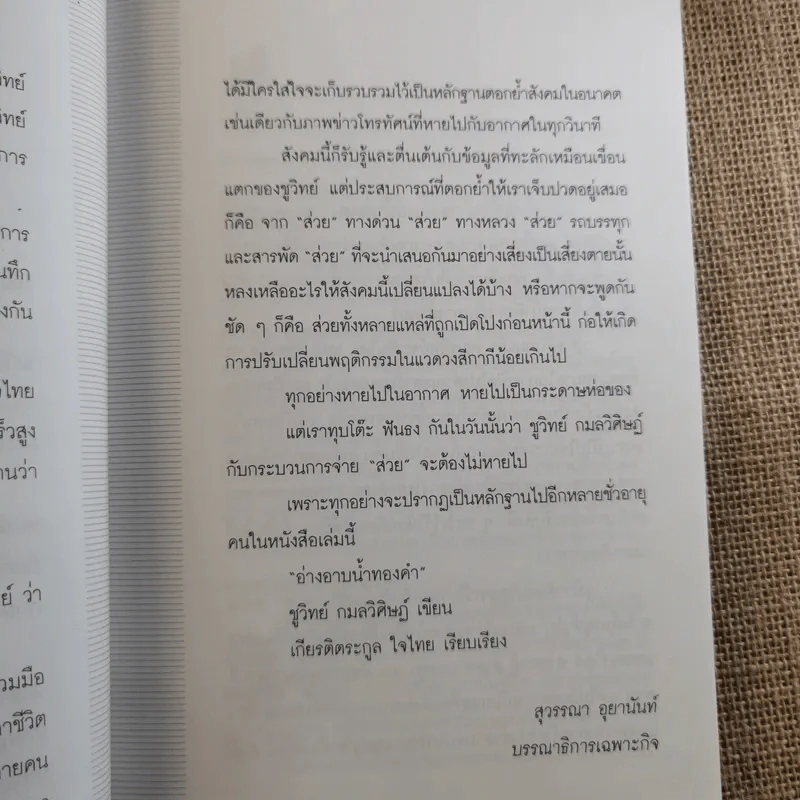 ิทย์
ิทย์
การ
การ
นทึก
งกัน
ไทย
ร็วสูง
านว่า
ย์ ว่า
วมมือ
าชีวิต
ายคน
ได้มีใครใส่ใจจะเก็บรวบรวมไว้เป็นหลักฐานตอกย้ำสังคมในอนาคต
เช่นเดียวกับภาพข่าวโทรทัศน์ที่หายไปกับอากาศในทุกวินาที
สังคมนี้ก็รับรู้และตื่นเต้นกับข้อมูลที่ทะลักเหมือนเขื่อน
แตกของชูวิทย์ แต่ประสบการณ์ที่ตอกย้ำให้เราเจ็บปวดอยู่เสมอ
ก็คือ จาก “ส่วย” ทางด่วน “ส่วย” ทางหลวง “ส่วย” รถบรรทุก
และสารพัด “ส่วย” ที่จะนำเสนอกันมาอย่างเสี่ยงเป็นเสี่ยงตายนั้น
หลงเหลืออะไรให้สังคมนี้เปลี่ยนแปลงได้บ้าง หรือหากจะพูดกัน
ชัด ๆ ก็คือ ส่วยทั้งหลายแหล่ที่ถูกเปิดโปงก่อนหน้านี้ ก่อให้เกิด
การปรับเปลี่ยนพฤติกรรมในแวดวงสีกากีน้อยเกินไป
ทุกอย่างหายไปในอากาศ หายไปเป็นกระดาษห่อของ
แต่เราทุบโต๊ะ ฟันธง กันในวันนั้นว่า ชูวิทย์ กมลวิศิษฎ์
กับกระบวนการจ่าย “ส่วย” จะต้องไม่หายไป
เพราะทุกอย่างจะปรากฏเป็นหลักฐานไปอีกหลายชั่วอายุ
คนในหนังสือเล่มนี้
“อ่างอาบน้ำทองคำ”
ชูวิทย์ กมลวิศิษฎ์ เขียน
เกียรติตระกูล ใจไทย เรียบเรียง
สุวรรณา อุยานันท์
บรรณาธิการเฉพาะกิจ